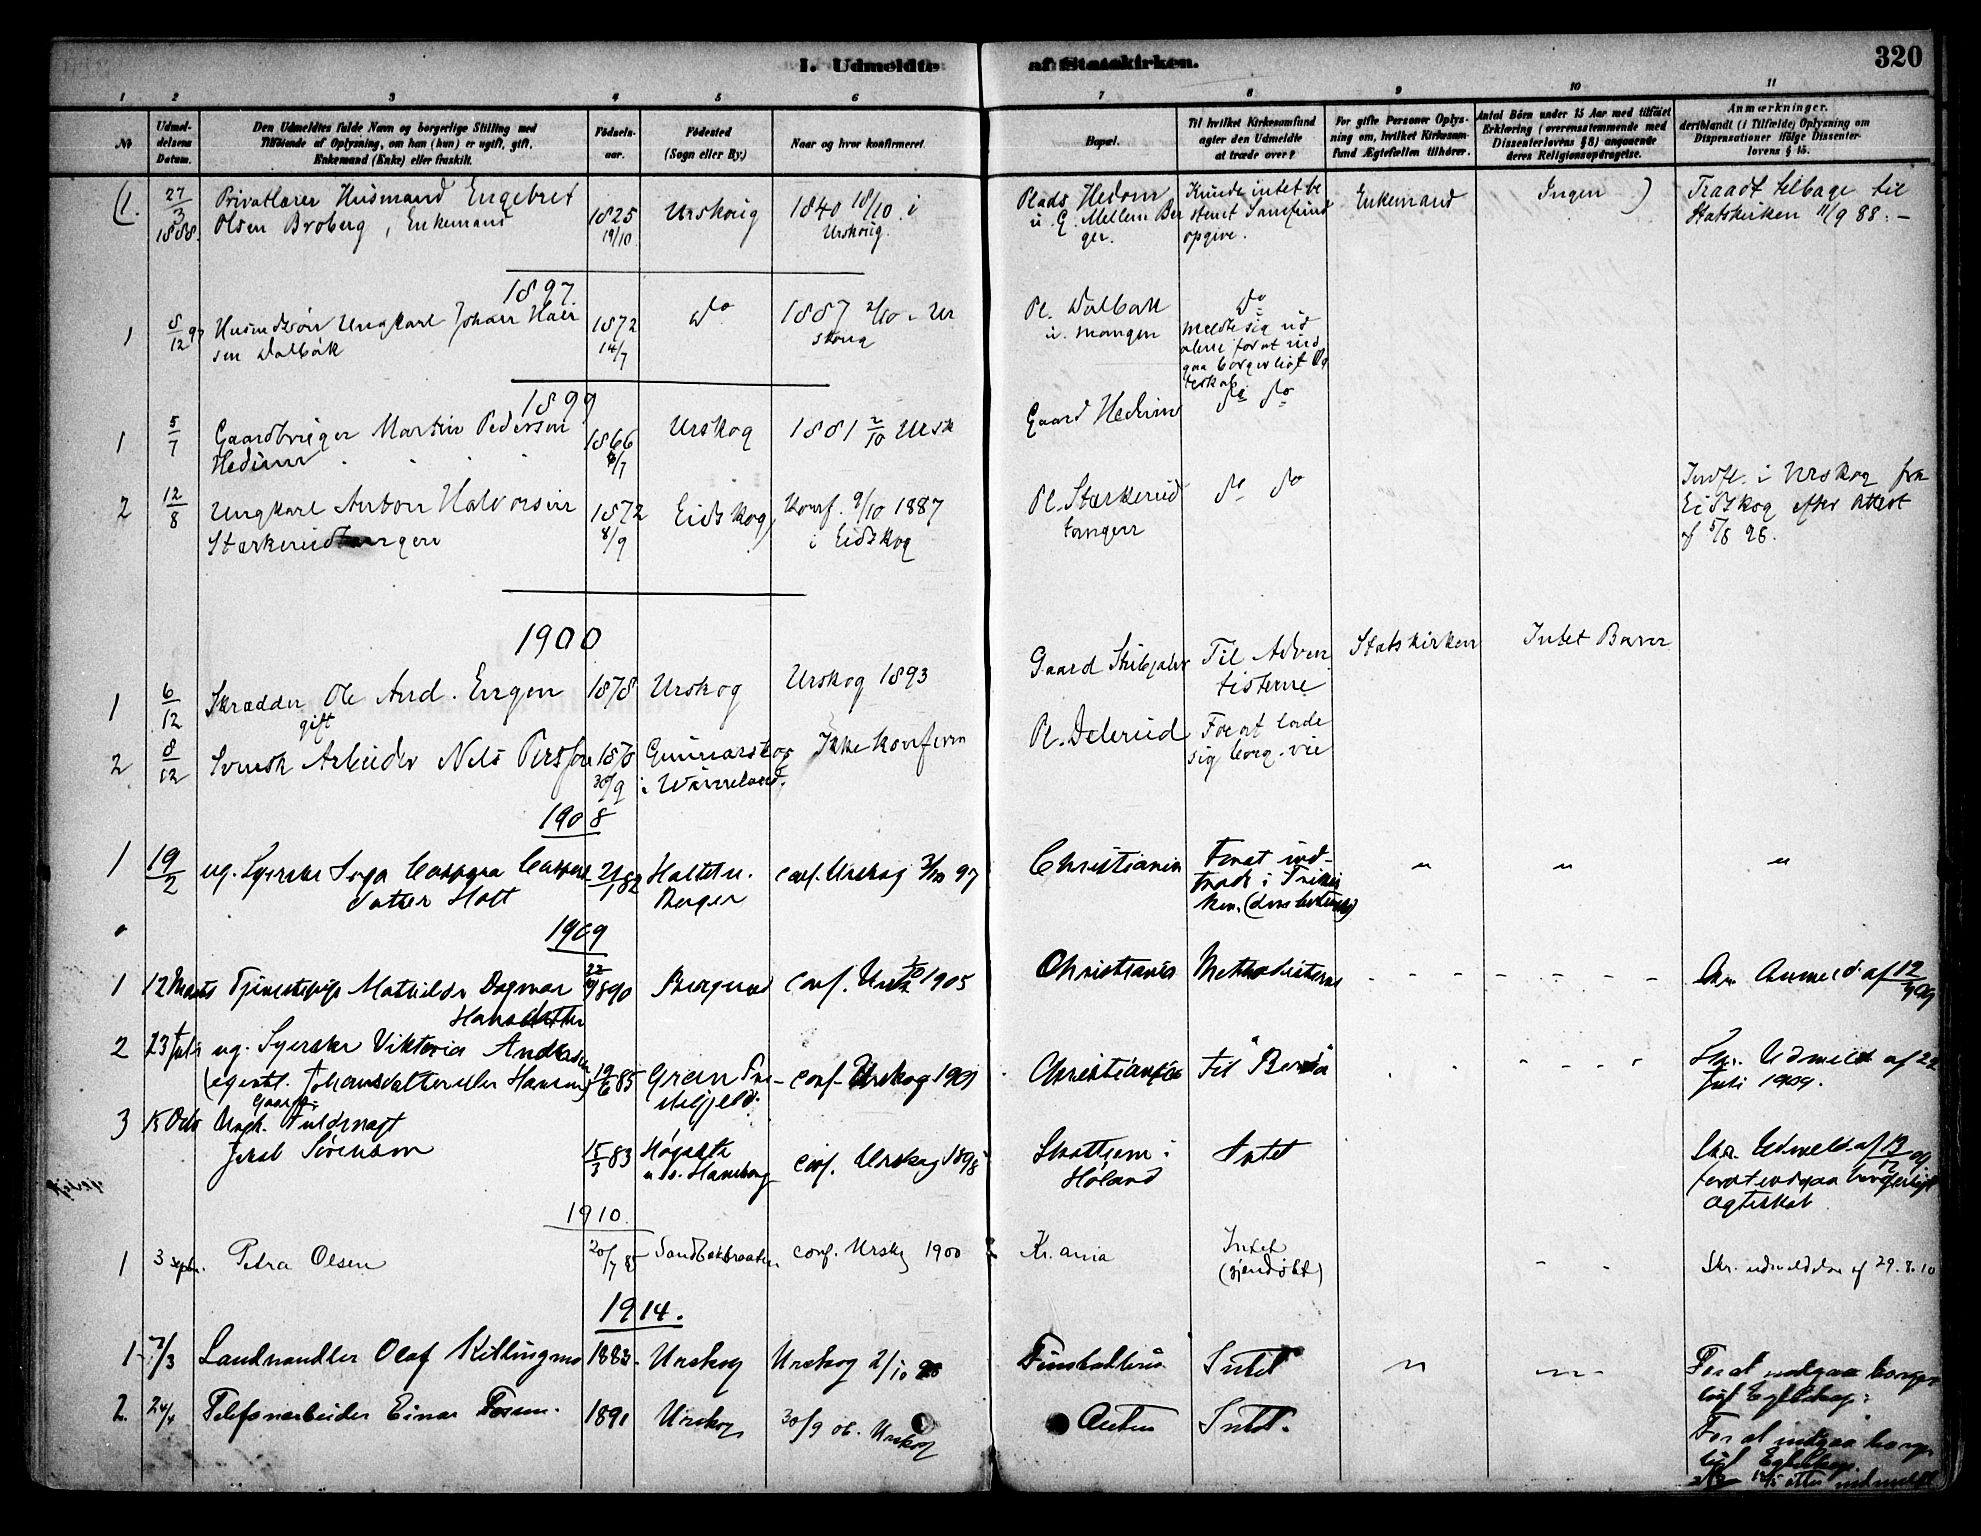 I. Udmeldte af Statskirken.
320
1 2 3 4 5 6 7 8 9 10 11
No
Udmel-
delsens
Datum.
Den Udmeldtes fulde Navn og borgerlige Stilling med
Tilföiende af Oplysning, om han (hun) er ugift, gift,
Enkemand (Enke) eller fraskilt.
Födsels-
aar.
Födested
(Sogn eller By.)
Naar og hvor konfirmeret.
Bopæl.
Til hvilket Kirkesamfund
agter den Udmeldte
at træde over?
For gifte Personer Oplys-
ning om, hvilket Kirkesam-
fund Ægtefællen tilhörer.
Antal Börn under 15 Aar med tilföiet
Erklæring (overensstemmende med
Dissenterlovens § 8) angaaende
deres Religionsopdragelse.
Anmærkninger.
deriblandt (i Tilfælde) Oplysning om
Dispensationer ifölge Dissenter-
lovens § 15.
(1. 27/3 1888. Privatlærer Husmand Engebret
Olsen Broberg, Enkemand
1825
19/10
Urskoug
1840 18/10 i
Urskoug.
Plads Hedom
u. G. Mellem Ber
ger.
Kunde intet be
stemt Samfund
opgive.
Enkemand
Ingen )
Traadt tilbage til
Statskirken 11/9 88. —
1897
1 8/12 97 Husmdsøn Ungkarl Johan Han
sen Dalbæk
1872
14/7
do
1887 2/10 i Ur
skoug
Pl. Dalbæk
u. Mangen
do
meldte sig ud
alene for at ind
gaa borgerligt Æg
teskab.
1899
1 5/7 Gaardbruger Martin Pedersen
Hedum
1866
6/7
Urskog
1881 2/10 Ursk
Gaard Hedum
do do
2 12/8 Ungkarl Anton Halvorsen
Stærkerudtangen
1872
8/9
Eidskog
Konf. 9/10 1887
i Eidskog
Pl. Stærkerud
tangen
do do
Indfl. i Urskog fra
Eidskog efter Attest
af 5/8 96.
1900
1 6/12 Skrædder Ole And. Engen
gift
1878
Urskog
Urskog 1893
Gaard
Til Adven
tisterne
Statskirken
Intet Barn
2 8/12 Svensk Arbeider Nels Persson
30/9
Gunnarskog
i Wärmeland.
Ikke konfirm
Pl. Delerud
For at lade
sig borg. vie
1908
1 19/2 ug. Syerske Inga Caspara Caspers
datter Holt
21/1 82
Holtet u.
Berger
conf. Urskog 3/10 97
Christiania
For at ind-
træde i Frikir
ken.
" " "
1909
1 12 Marts Tjenestepige Mathilde Dagmar
Hansdatter
22/9 1890
Bergerud
conf. Ursk 1/10 1905
Christiania
Methodisterne
Skr. Anmeld. af 12/3 09
2 23 Juli ug. Syerske Viktoria Andersen
(egentl. Johansdatter eller Hansen)
19/6 85
Gran
conf. Urskog 1901
Christiania
til "Berøa"
Skr. Udmeld af 22
Juli 1909.
3 15 Octo Ungk. Gaardsfuldmægt
Jacob Sörensen
15/3 83
u. s. Haneborg
conf. Urskog 1898
Skattum i
Höland
Intet
Skr. Udmeld. af 13/10 09.
for at indgaa borgerligt
Ægteskab
1910.
1 3 septbr. Petra Olsen
20/7 85
Sandbækbraaten
conf. Ursk 1900
Kr.ania
Intet
(gjendøbt)
Skr. udmeldelse af 29.8.10
1914.
1 7/3 Landhandler Olaf Killingmo
1883.
Urskog
Urskog 2/10
Finstadbru
Intet
For at indgaa borger
ligt Egteskap.
2. 24/4 Telefonarbeider Einar Fossum.
1891
Urskog
30/9 06. Urskog
Austen
Intet.
For at indgaa borger
ligt Egteskap.